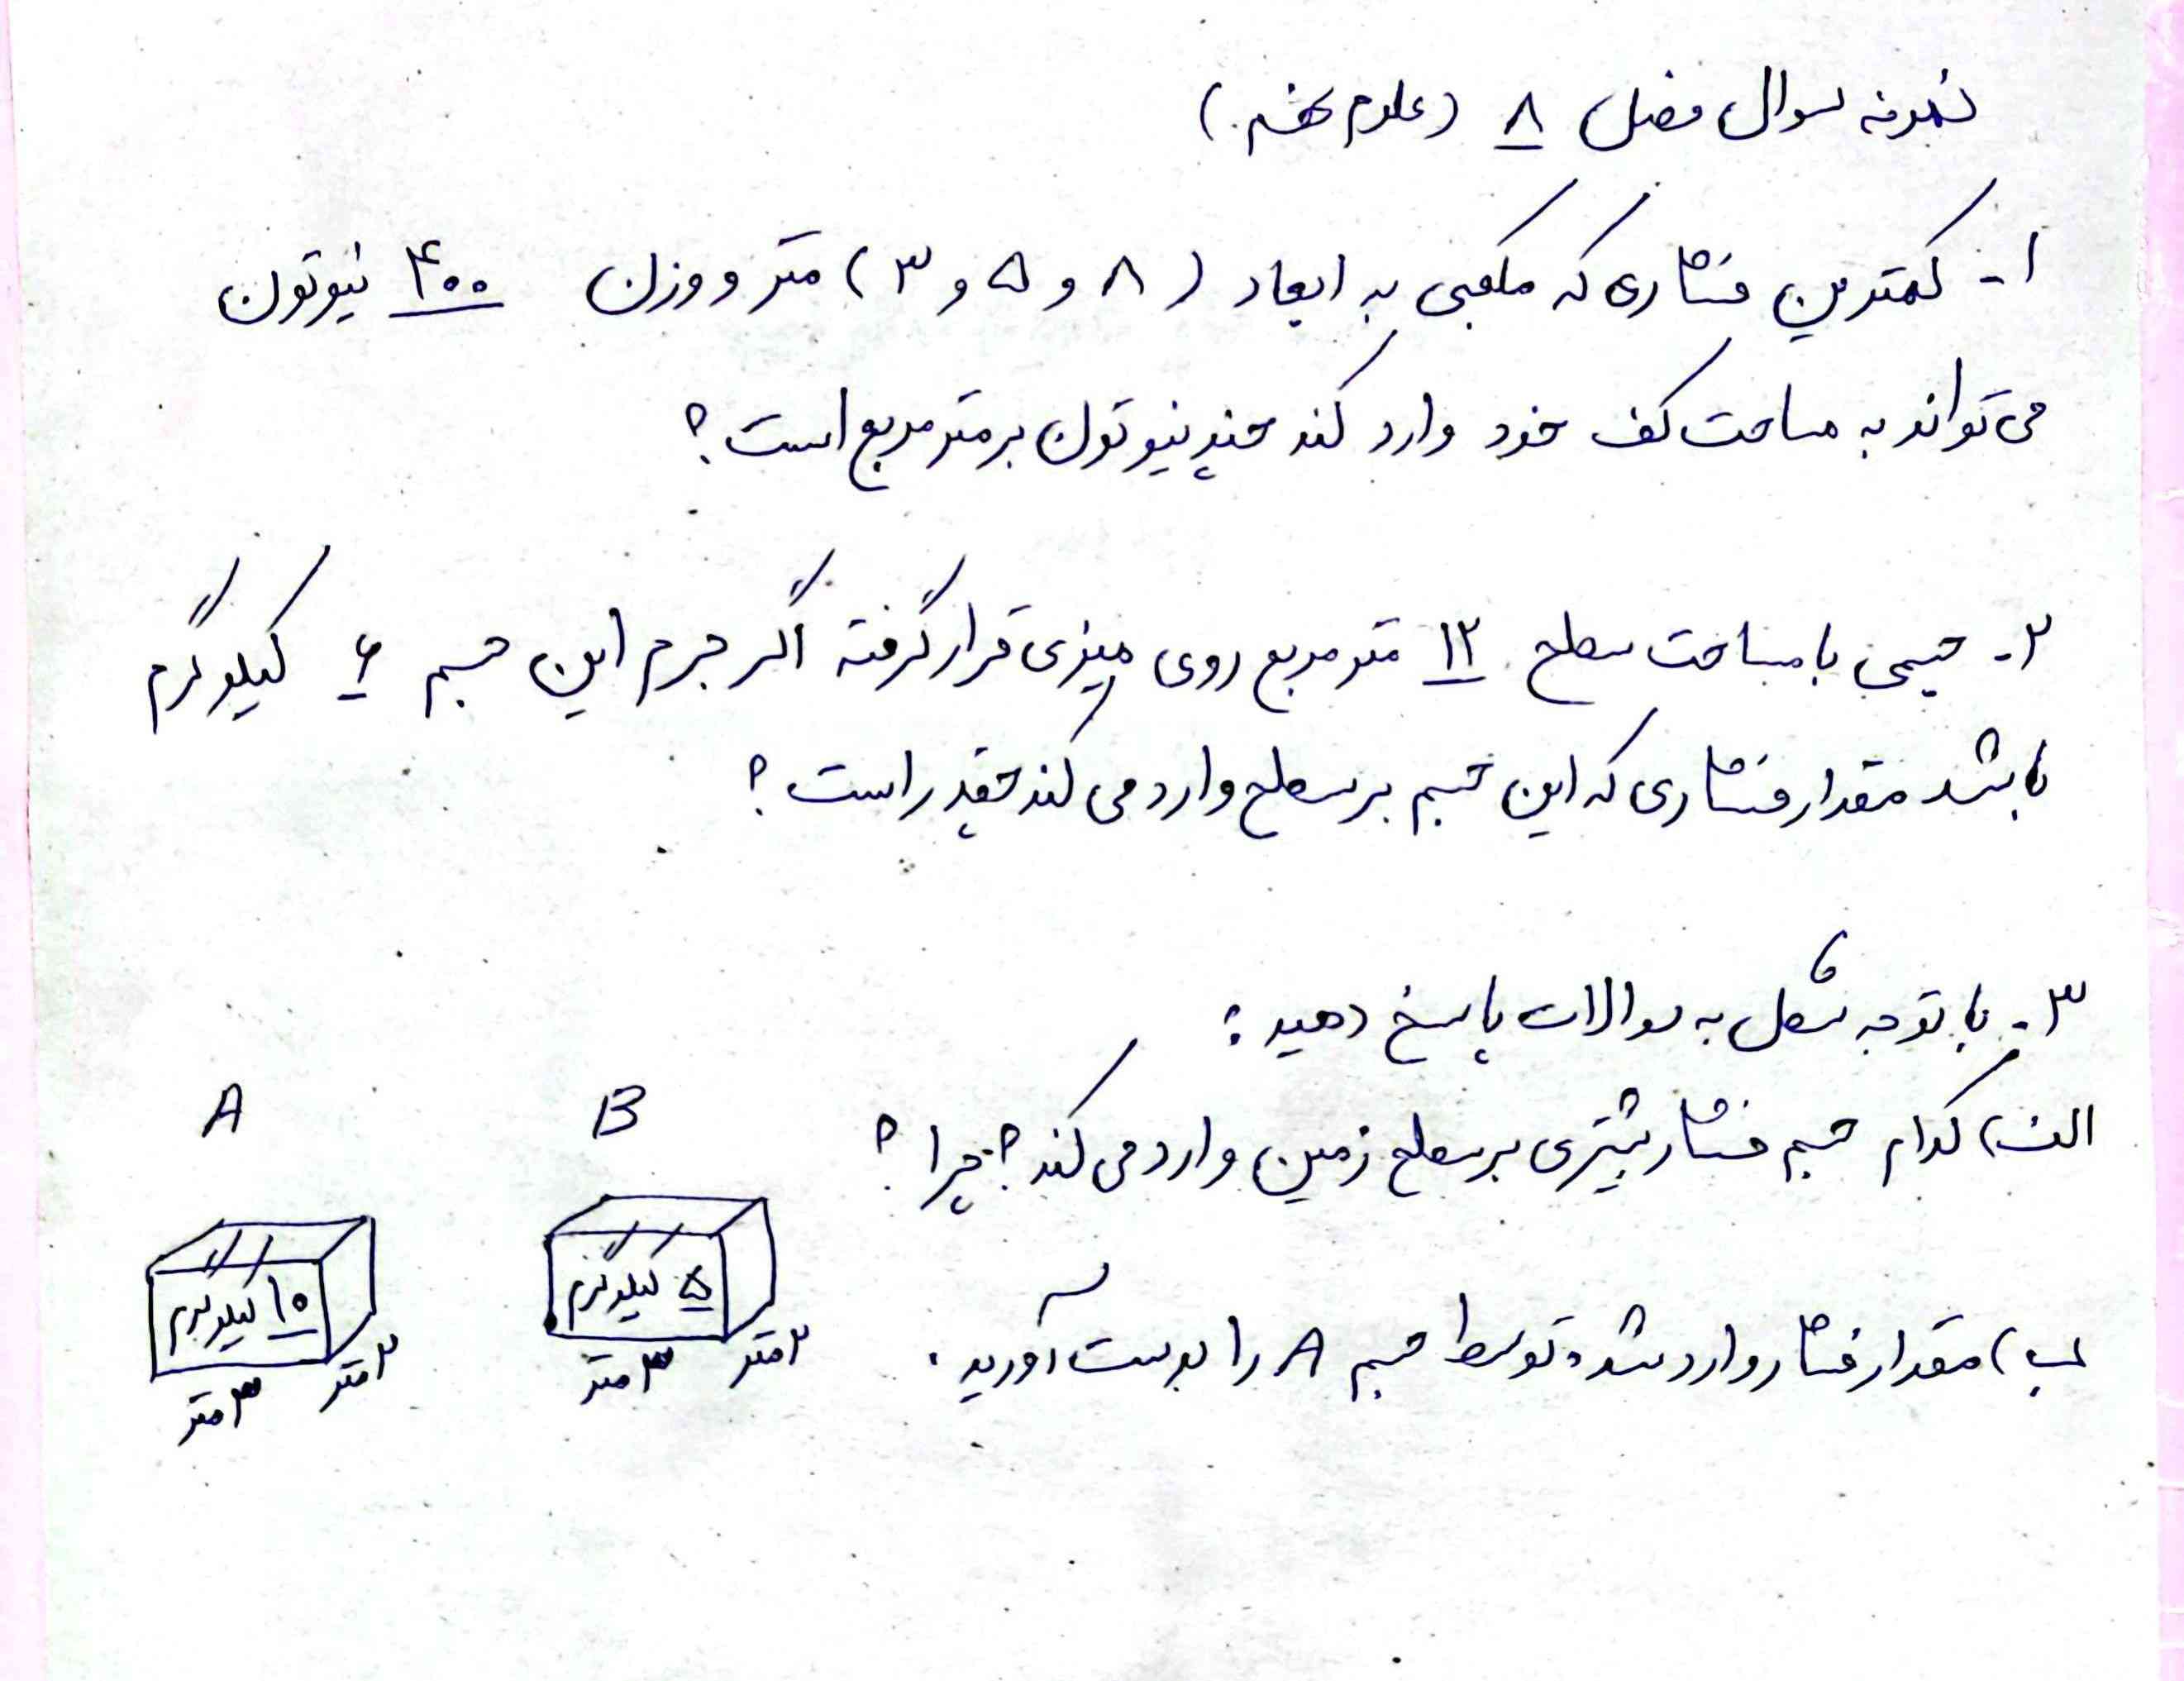 نمونه سوال فصل ۸ (علوم نهم)
۱- کمترین فشاری که مکعبی به ابعاد (۸ و ۵ و ۳) متر و وزن ۴۰۰ نیوتون
می تواند به مساحت کف خود وارد کند چند نیوتون بر متر مربع است؟
۲- جسمی با مساحت سطح ۱۲ متر مربع روی میزی قرار گرفته اگر جرم این جسم ۶ کیلوگرم
باشد مقدار فشاری که این جسم بر سطح وارد می کند چقدر است؟
۳- با توجه شکل به سوالات پاسخ دهید:
الف) کدام جسم فشار بیشتری بر سطح زمین وارد می کند؟ چرا؟
ب) مقدار فشار وارد شده توسط جسم A را بدست آورید.
B
۵ کیلوگرم
۳ متر
۲ متر
A
۱۰ کیلوگرم
۳ متر
۲ متر